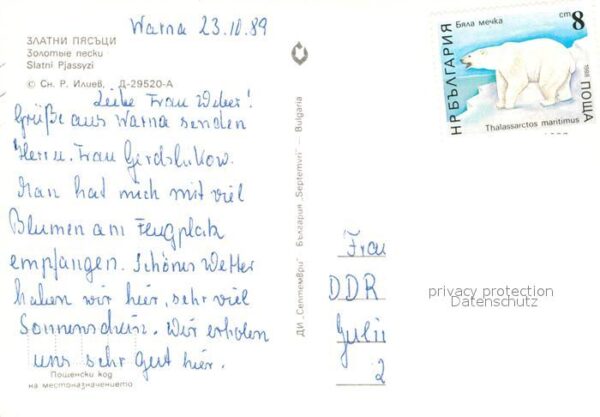 Warna 23.10.89
ЗЛАТНИ ПЯСЪЦИ
Золотые пески
Slatni Pjassyzi
© Сн. Р. Илиев, Д-29520-А
Liebe Frau Weber!
Grüße aus Warna senden
Herr u. Frau Girdshikow.
Man hat mich mit viel
Blumen am Flugplatz
empfangen. Schönes Wetter
haben wir hier, sehr viel
Sonnenschein. Wir erholen
uns sehr gut hier.
Пощенски код
на местоназначението
ДИ „Септември" България „Septemvri" — Bulgaria
Бяла мечка
ст 8
НР БЪЛГАРИЯ
1988 ПОЩА
Thalassarctos maritimus
Frau
DDR
privacy protection
Datenschutz
2